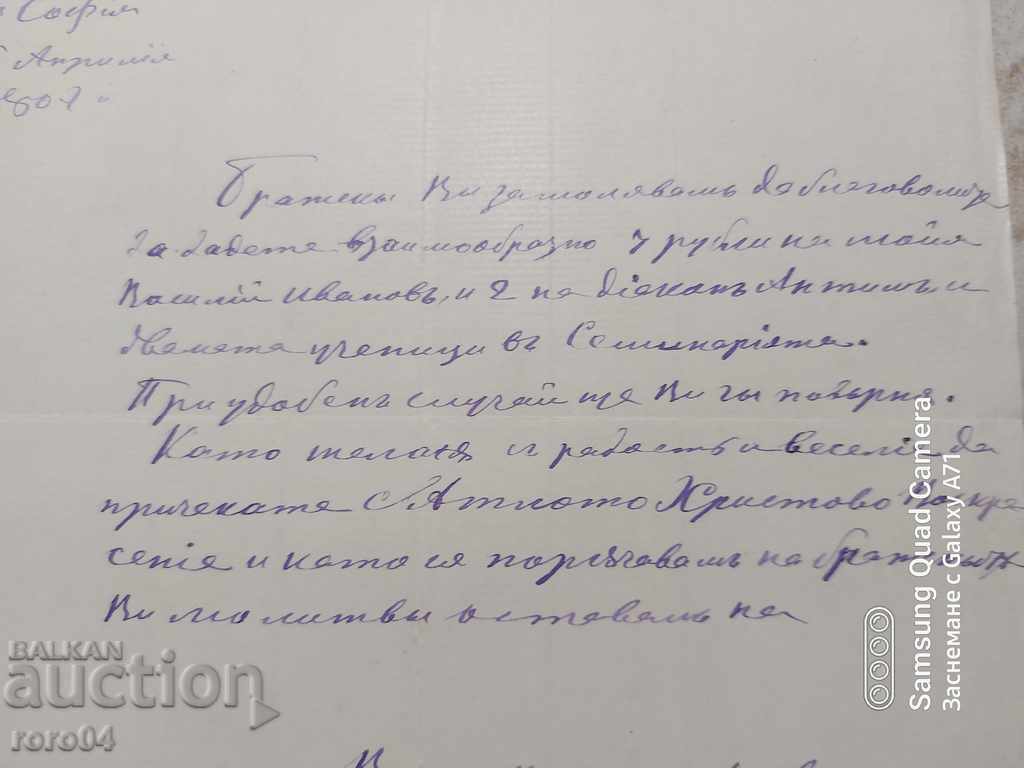 София
Априлія
Братски Ви замолявамъ да благоволите
да дадете взаимообразно 4 рубли на моя
Василій Ивановъ, и 2 на діяконъ Антимъ и
двамата ученици въ Семинаріята.
При удобенъ случай ще Ви гы повърна.
Като желая съ радость и веселіе да
причекате Святлото Христово Вокре
сеніе и като ся поръчвамъ на братскытѣ
Ви молитвы оставамъ на
BALKAN
auction
roro04
Samsung Quad Camera
Заснемане с Galaxy A71